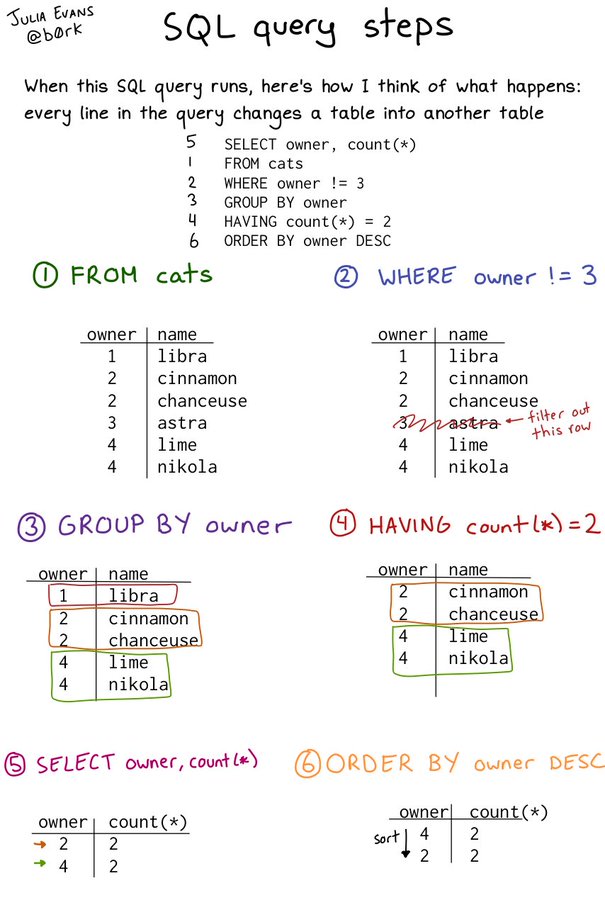 JULIA EVANS
@b0rk
SQL query steps
When this SQL query runs, here's how I think of what happens:
every line in the query changes a table into another table
5 SELECT owner, count(*)
1 FROM cats
2 WHERE owner != 3
3 GROUP BY owner
4 HAVING count(*) = 2
6 ORDER BY owner DESC
① FROM cats
owner name
1 libra
2 cinnamon
2 chanceuse
3 astra
4 lime
4 nikola
② WHERE owner != 3
owner name
1 libra
2 cinnamon
2 chanceuse
3 astra ← filter out
this row
4 lime
4 nikola
③ GROUP BY owner
owner name
1 libra
2 cinnamon
2 chanceuse
4 lime
4 nikola
④ HAVING count(*)=2
owner name
2 cinnamon
2 chanceuse
4 lime
4 nikola
⑤ SELECT owner, count(*)
owner count(*)
→ 2 2
→ 4 2
⑥ ORDER BY owner DESC
owner count(*)
sort 4 2
2 2